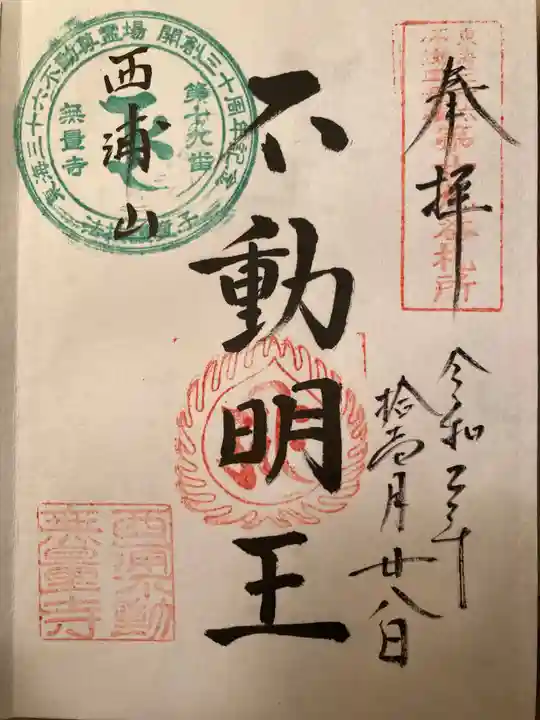 奉拝
令和二年
拾壱月廿八日
不動明王
西浦山
東海三十六不動尊霊場 開創三十周年記念
第十九番
無量寺
西浦不動
無量寺